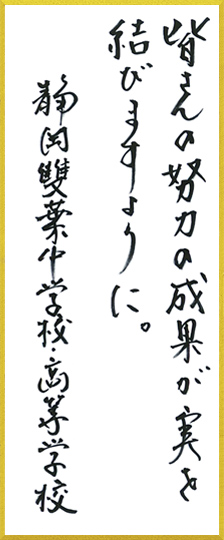 皆さんの努力の成果が実を
結びますように。
静岡雙葉中学校・高等学校